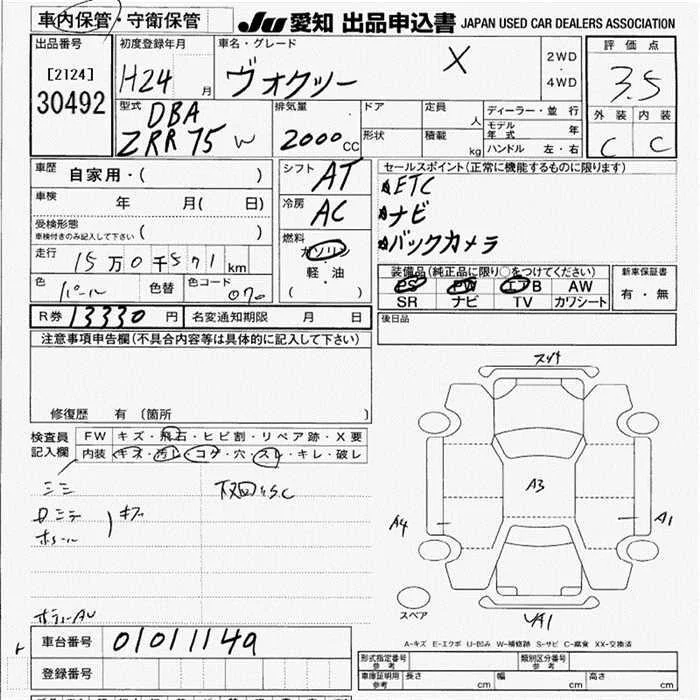 車内保管・守衛保管
JU 愛知 出品申込書 JAPAN USED CAR DEALERS ASSOCIATION
出品番号 初度登録年月 車名・グレード 2WD ・ 4WD 評価点
[2124]
30492
H24 月 ヴォクシー X
3.5
型式 DBA ZRR75W
排気量 2000 CC
ドア 定員 人 ディーラー・並行
形状 積載 kg モデル年式 年
ハンドル 左・右
外装 内装
C C
車歴 自家用・( )
シフト AT
セールスポイント(正常に機能するものに限ります)
車検 年 月( 日)
冷房 AC
ETC
ナビ
バックカメラ
受検形態 車検付きのみ記入して下さい ( )
燃料 ガソリン
軽・油
( )
走行 15万0千571 km
色 パール 色替 色コード 070
装備品(純正品に限り○をつけてください) 新車保証書
PS PW エアB AW 有・無
SR ナビ TV カワシート
R券 13330 円 名変通知期限 月 日
後日品
注意事項申告欄(不具合内容等は具体的に記入して下さい)
修復歴 有 〔箇所 〕
検査員記入欄
FW キズ・飛石・ヒビ割・リペア跡・X要
内装 キズ・汚レ・コゲ・穴・スレ・キレ・破レ
キズ
A3
A4
A1
スペア
A-キズ E-エクボ U-凹み W-補修跡 S-サビ C-腐食 XX-交換済
車台番号 0101149
登録番号
型式指定番号 参考 類別区分番号 参考
車庫証明用 参考 長さ cm 幅 cm 高さ cm